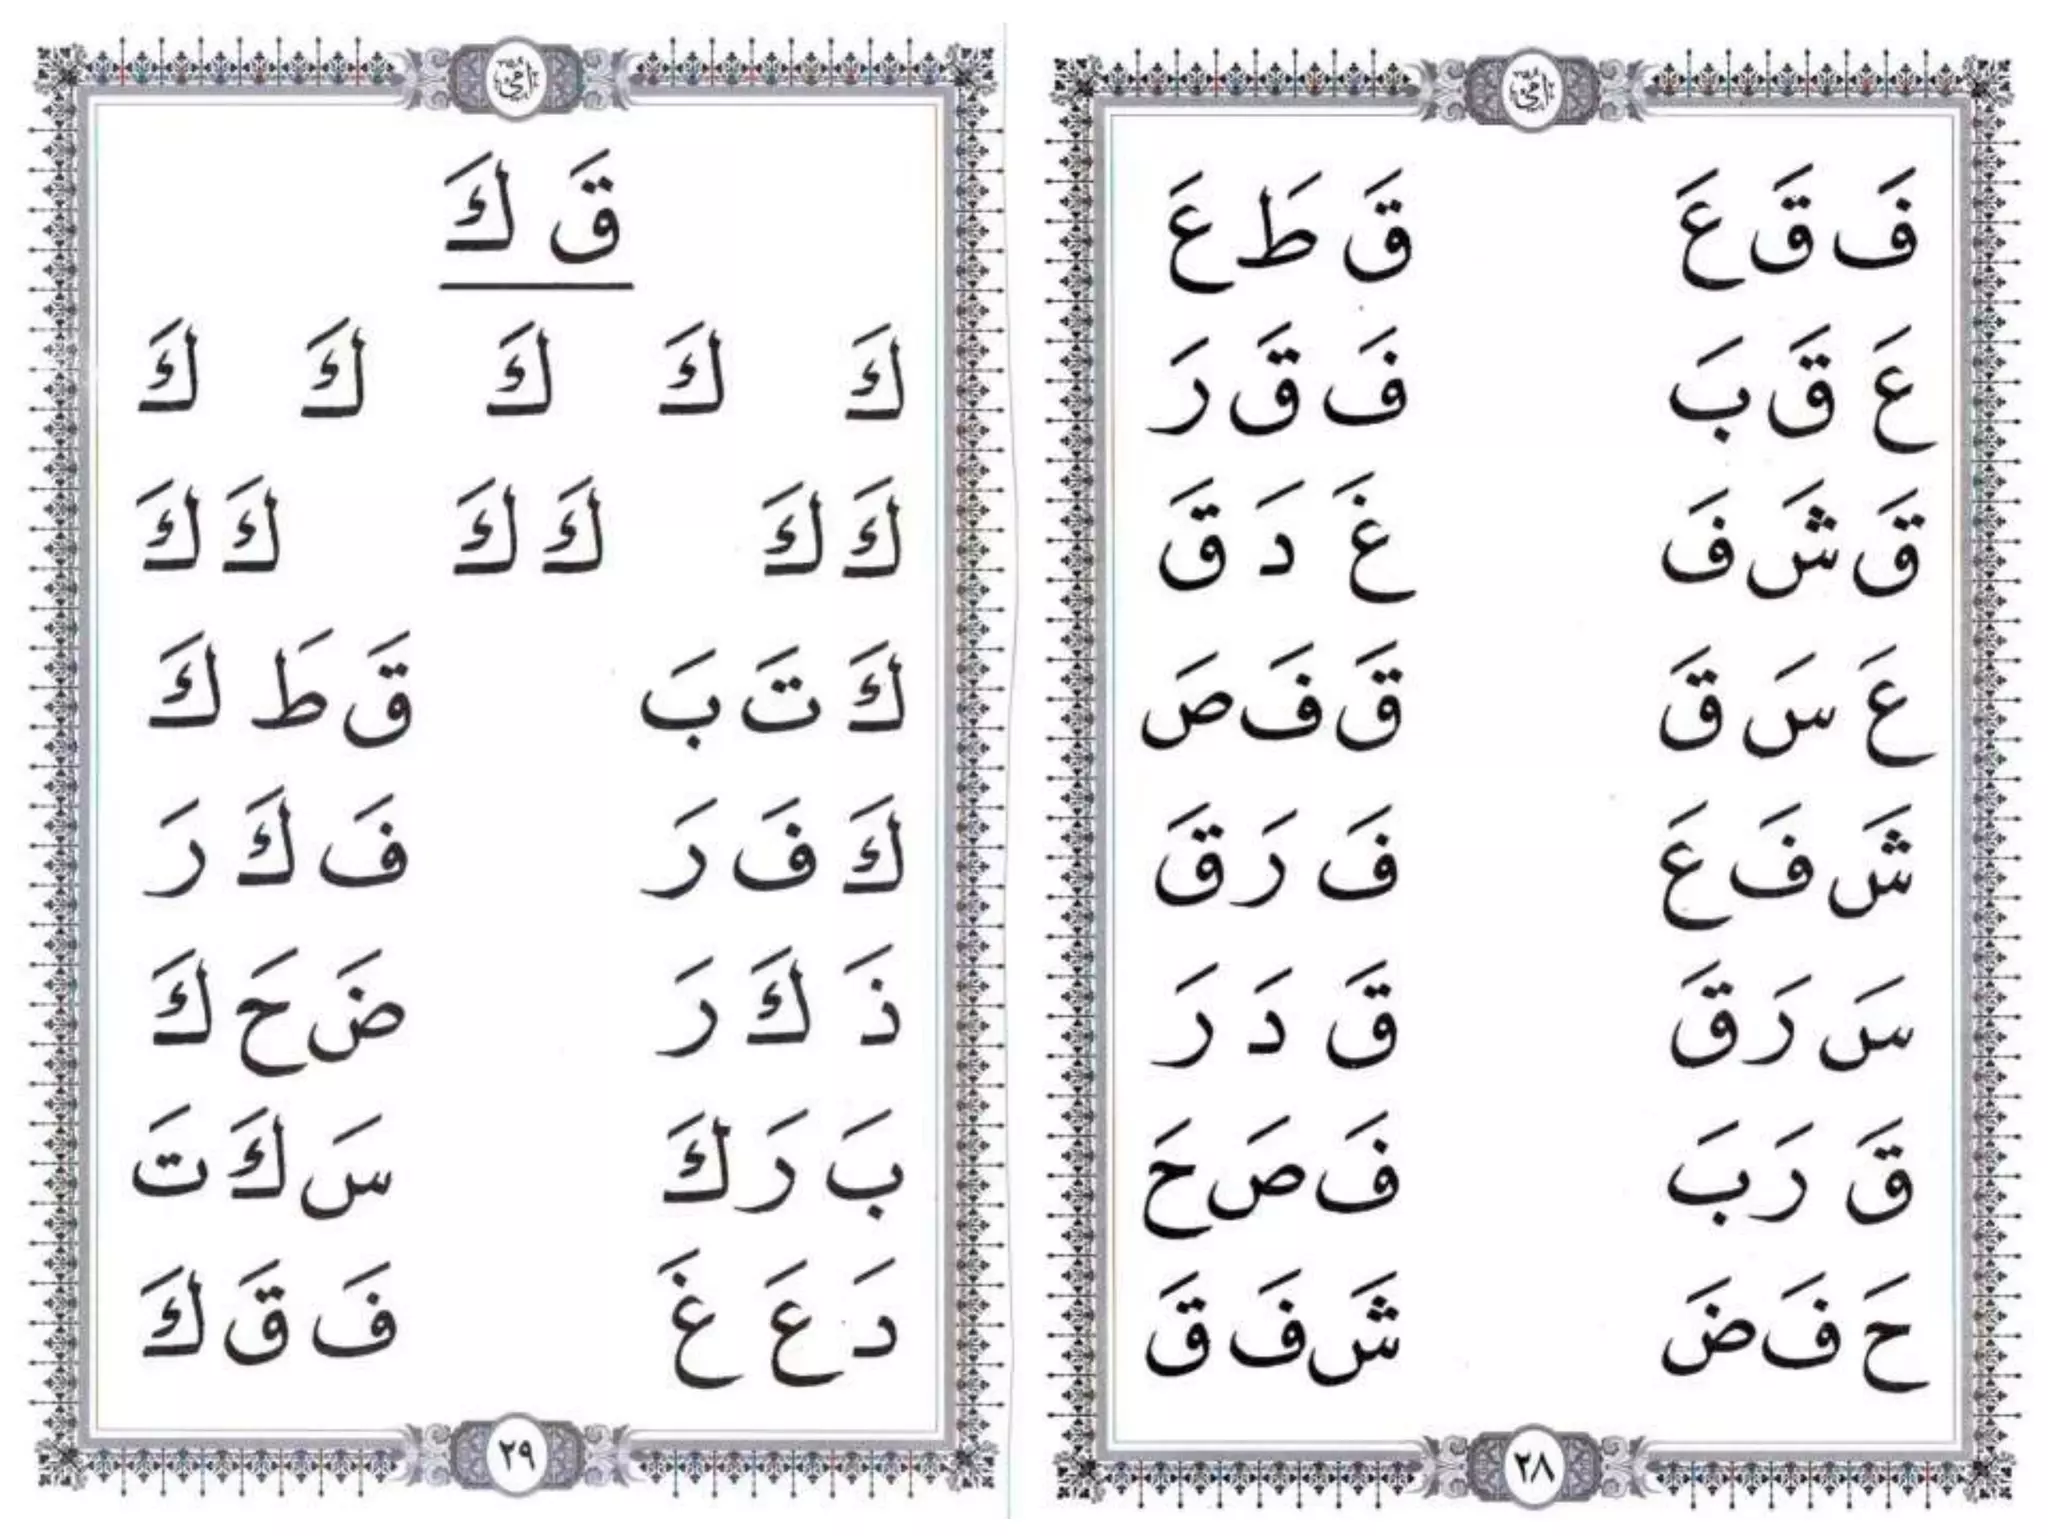 فَ قَ عَ قَ طَ عَ
عَ قَ بَ فَ قَ رَ
قَ شَ فَ غَ دَ قَ
عَ سَ قَ قَ فَ صَ
شَ فَ عَ فَ رَ قَ
سَ رَ قَ قَ دَ رَ
قَ رَ بَ فَ صَ حَ
حَ فَ ضَ شَ فَ قَ
٢٨
قَ كَ
كَ كَ كَ كَ كَ
كَ كَ كَ كَ كَ كَ
كَ تَ بَ قَ طَ كَ
كَ فَ رَ فَ كَ رَ
ذَ كَ رَ ضَ حَ كَ
بَ رَ كَ سَ كَ تَ
دَ عَ غَ فَ قَ كَ
٢٩